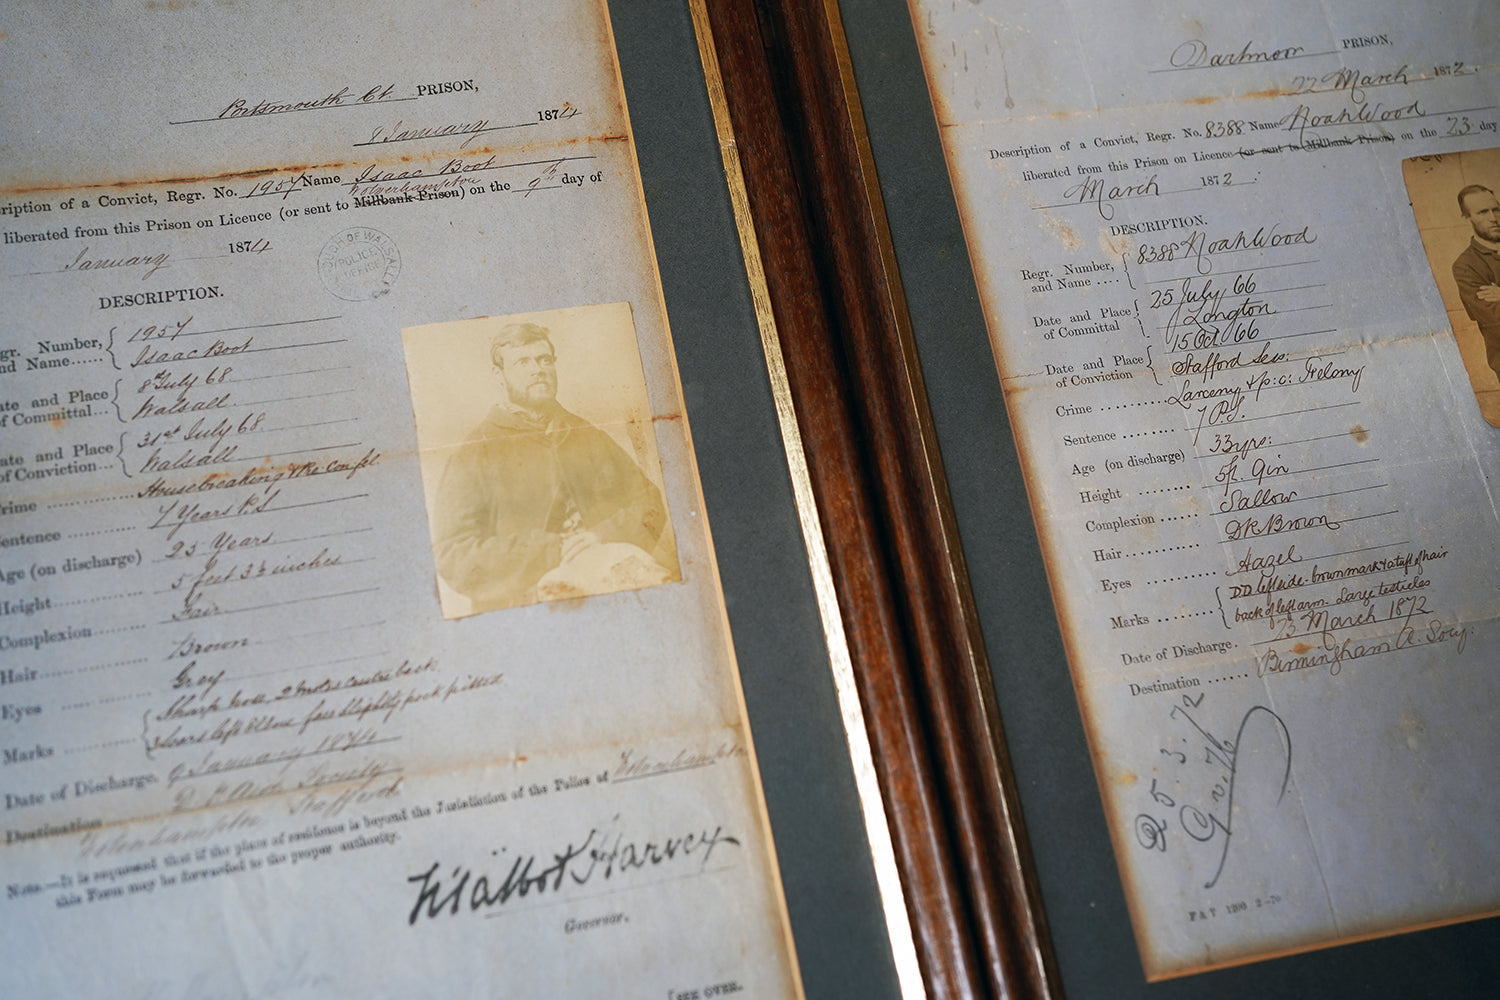 Portsmouth Ct. PRISON,
January 1874
ription of a Convict, Regr. No. 1957 Name Isaac Boot
Wolverhampton
liberated from this Prison on Licence (or sent to Millbank Prison) on the 9th day of
January 1874
BOROUGH OF WALSALL
POLICE
OFFICE
DESCRIPTION.
gr. Number, 1957
nd Name...... Isaac Boot
ate and Place 8th July 68
of Committal... Walsall.
ate and Place 31st July 68.
of Conviction... Walsall.
rime .......... Housebreaking
entence .......... 7 Years P.S
Age (on discharge) 25 Years
Height.......... 5 feet 3½ inches
Complexion......... Fair.
Hair .......... Brown
Eyes .......... Grey
Sharp nose, 2 moles centre back
Marks .......... Scars left Elbow face slightly pock pitted
Date of Discharge. 9 January 1874
D. P. Aid Society
Destination Stafford
Wolverhampton
Note.—It is requested that if the place of residence is beyond the Jurisdiction of the Police of Wolverhampton
this Form may be forwarded to the proper authority.
Talbot Harvey
Governor.
[SEE OVER.
Dartmoor PRISON,
22 March 1872.
Description of a Convict, Regr. No. 8388 Name Noah Wood
liberated from this Prison on Licence (or sent to Millbank Prison) on the 23 day
March 1872.
DESCRIPTION.
Regr. Number, 8388 Noah Wood
and Name ....
Date and Place 25 July 66
of Committal Longton
Date and Place 15 Oct. 66
of Conviction Stafford Sess:
Crime .......... Larceny & p: c: Felony
Sentence ........ 7 P.S.
Age (on discharge) 33 yrs:
Height ........ 5ft. 9in
Complexion ...... Sallow
Hair............ Dk Brown
Eyes .......... Hazel
DD left side. brown mark & a tuft of hair
Marks ........ back of left arm. Large testicles
Date of Discharge. 23 March 1872
Destination ...... Birmingham A. Socy.
25.3.72
F & T 1200 2–70